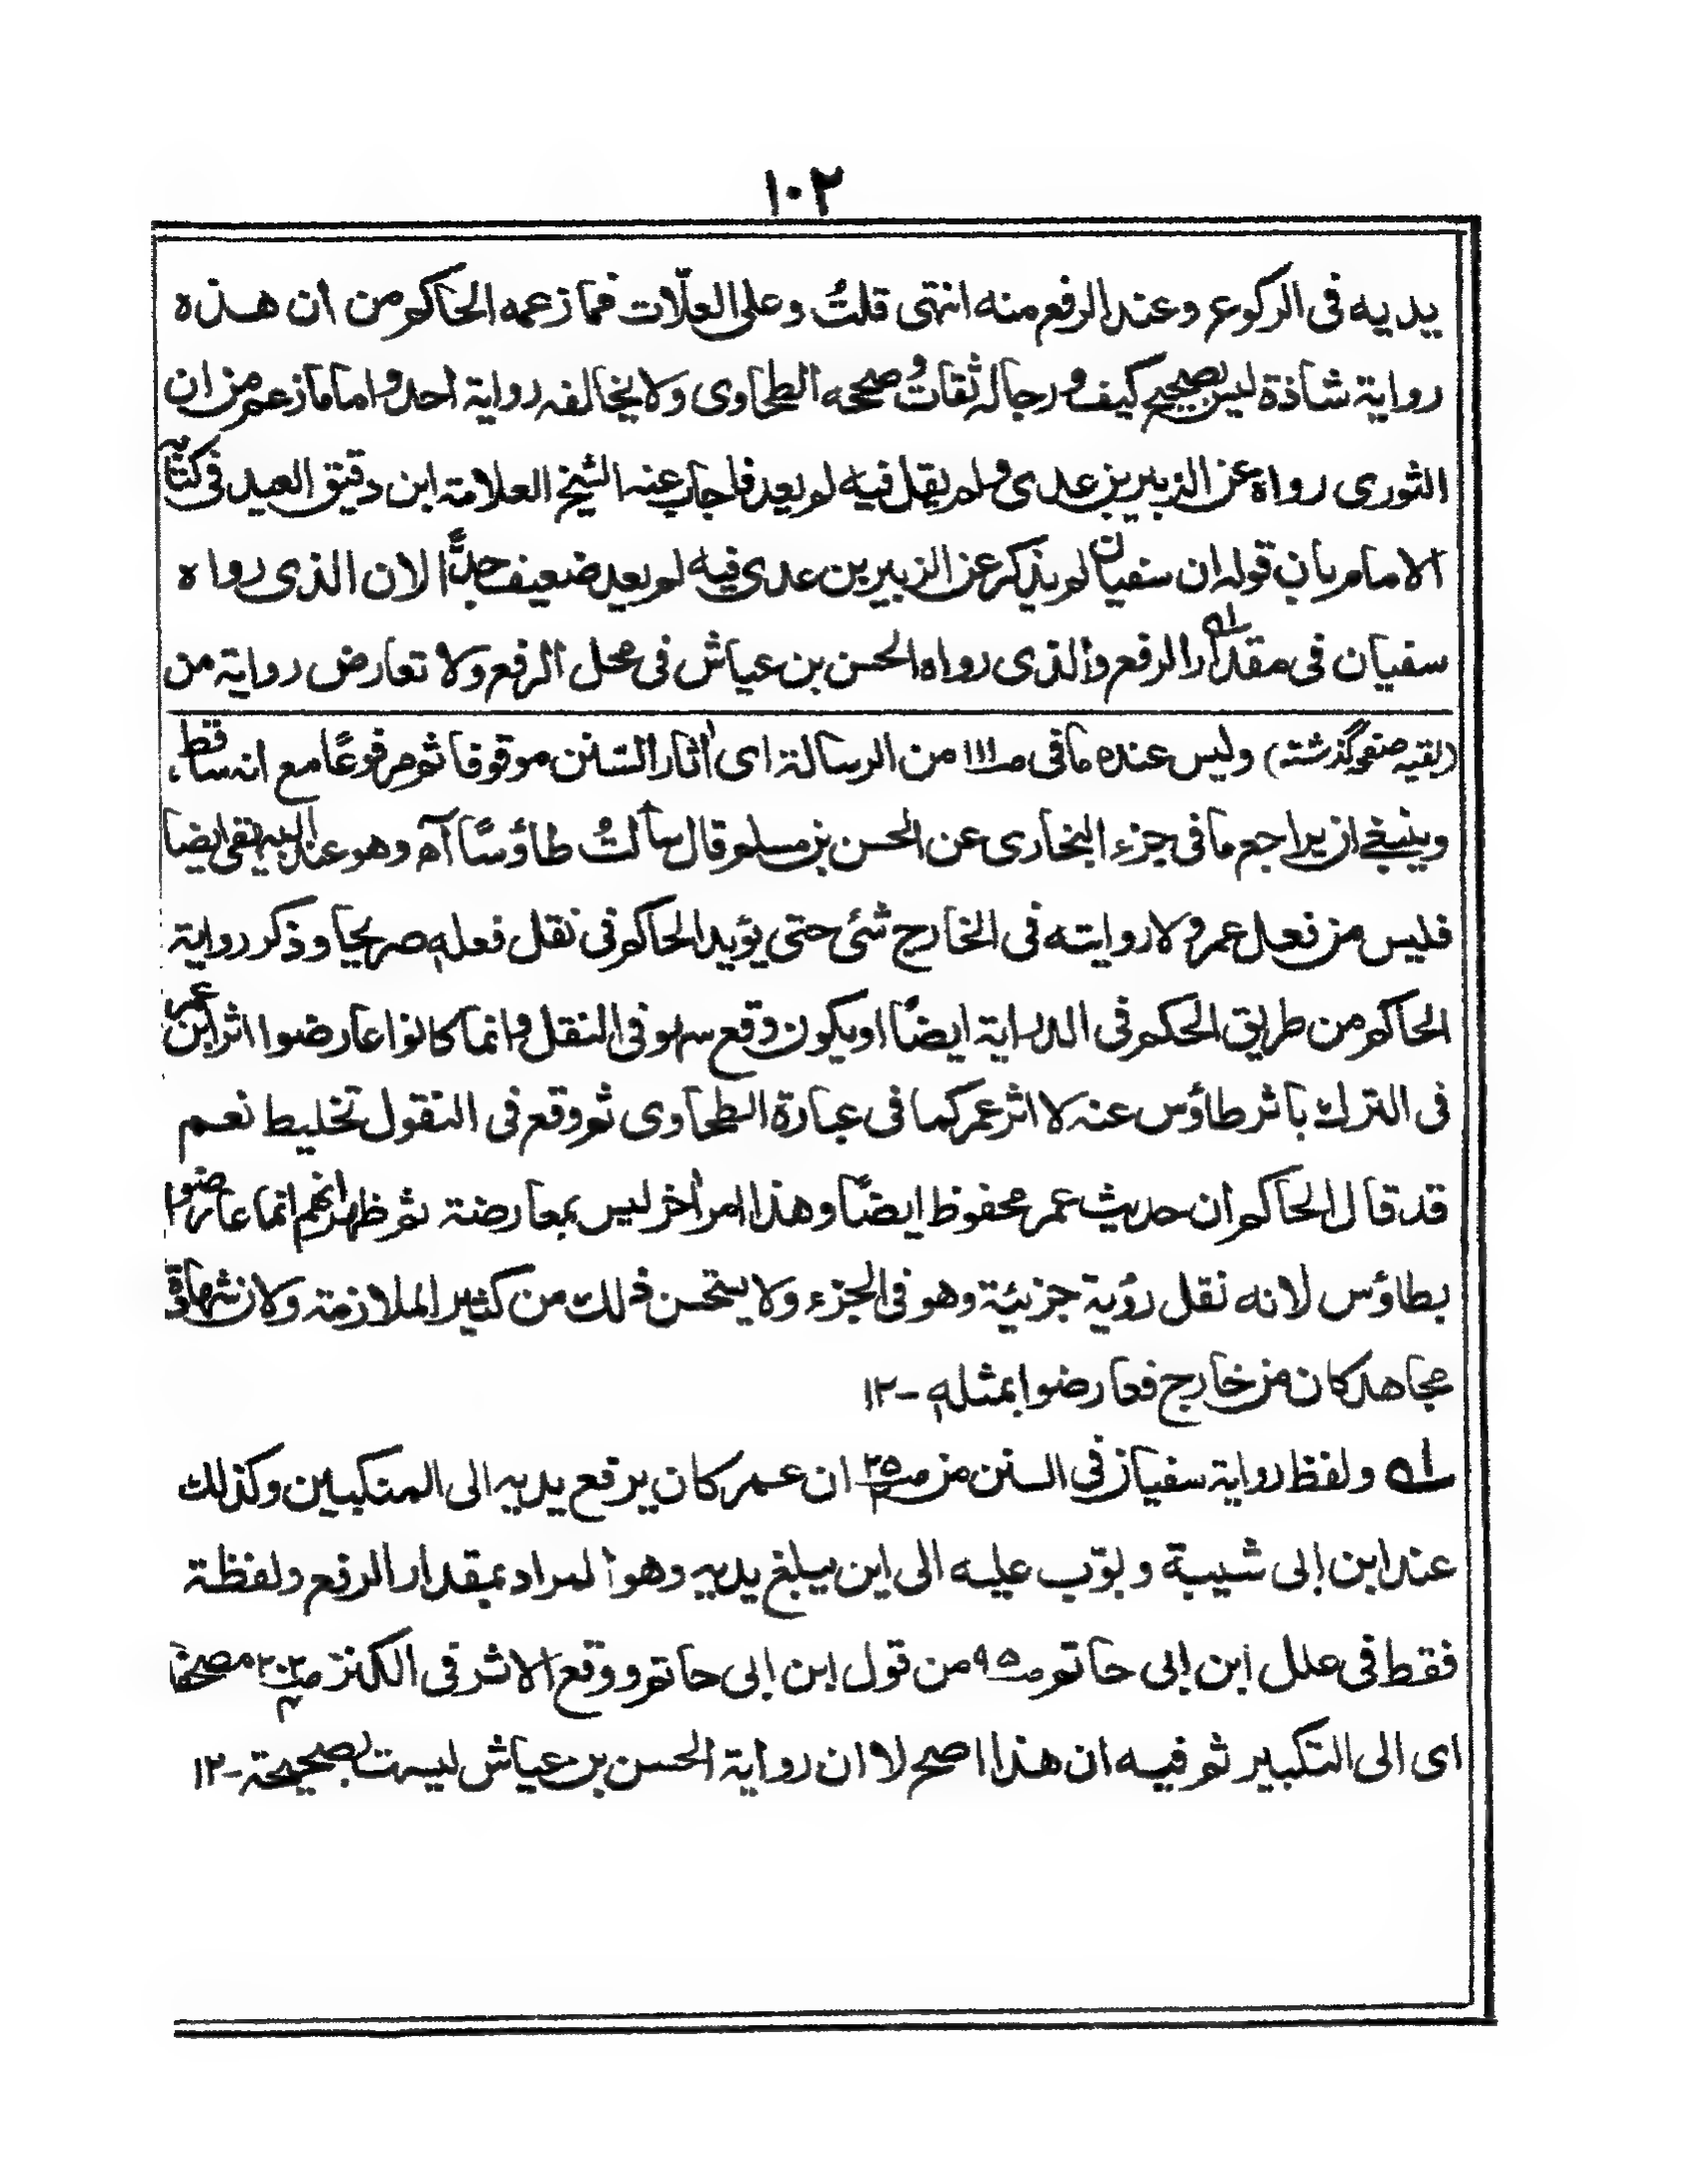 ١٠٢
يديه فى الركوع وعند الرفع منه انتهى قلتُ وعلى العلّات فما زعمه الحاكم من ان هذه
رواية شاذة ليس بصحيح كيف ورجاله ثقاتٌ وصححه الطحاوى ولا يخالفه رواية احد واما ما زعم من ان
الثورى رواه عن الزبير بن عدى ولم يقل فيه لم يعد فاجاب عنه الشيخ العلامة ابن دقيق العيد فى كتابه
الامام بان قوله ان سفيان لم يذكر عن الزبير بن عدى فيه لم يعد ضعيف جدًّا لان الذى رواه
سفيان فى مقدار الرفع والذى رواه الحسن بن عياش فى محل الرفع ولا تعارض رواية من
(بقيه صفحه گذشته) وليس عنده ما فى صـ١١١ من الرسالة اى اثار السنن موقوفا ثم مرفوعًا مع انه ساقط،
وينبغى ان يراجع ما فى جزء البخارى عن الحسن بن مسلم قال سألتُ طاؤسًا اٰه وهو عند البيهقى ايضا
فليس من فعل عمر ولا روايته فى الخارج شئ حتى يؤيد الحاكم فى نقل فعله صريحا وذكر رواية
الحاكم من طريق الحكم فى الدراية ايضًا او يكون وقع سهو فى النقل وانما كانوا عارضوا اثر ابن عمر
فى الترك باثر طاؤس عنه لا اثر عمر كما فى عبارة الطحاوى ثم وقع فى النقول تخليط نعم
قد قال الحاكم ان حديث عمر محفوظ ايضًا وهذا امر اٰخر ليس بمعارضة ثم ظهر انهم انما عارضوا
بطاؤس لانه نقل رؤية جزئية وهو فى الجزء ولا يستحسن ذلك من كثير الملازمة ولان شهادة
مجاهد كان من خارج فعارضوا بمثله -١٢
لـه ولفظ رواية سفيان فى السنن من صـ٢٥ ان عمر كان يرفع يديه الى المنكبين وكذلك
عند ابن ابى شيبة وبوّب عليه الى اين يبلغ يديه وهو المراد بمقدار الرفع ولفظة
فقط فى علل ابن ابى حاتم صـ٩٥ من قول ابن ابى حاتم ووقع الاثر فى الكنز صـ٢٠٣ مصحفا
اى الى التكبير ثم فيه ان هذا اصح لا ان رواية الحسن بن عياش ليست بصحيحة -١٢